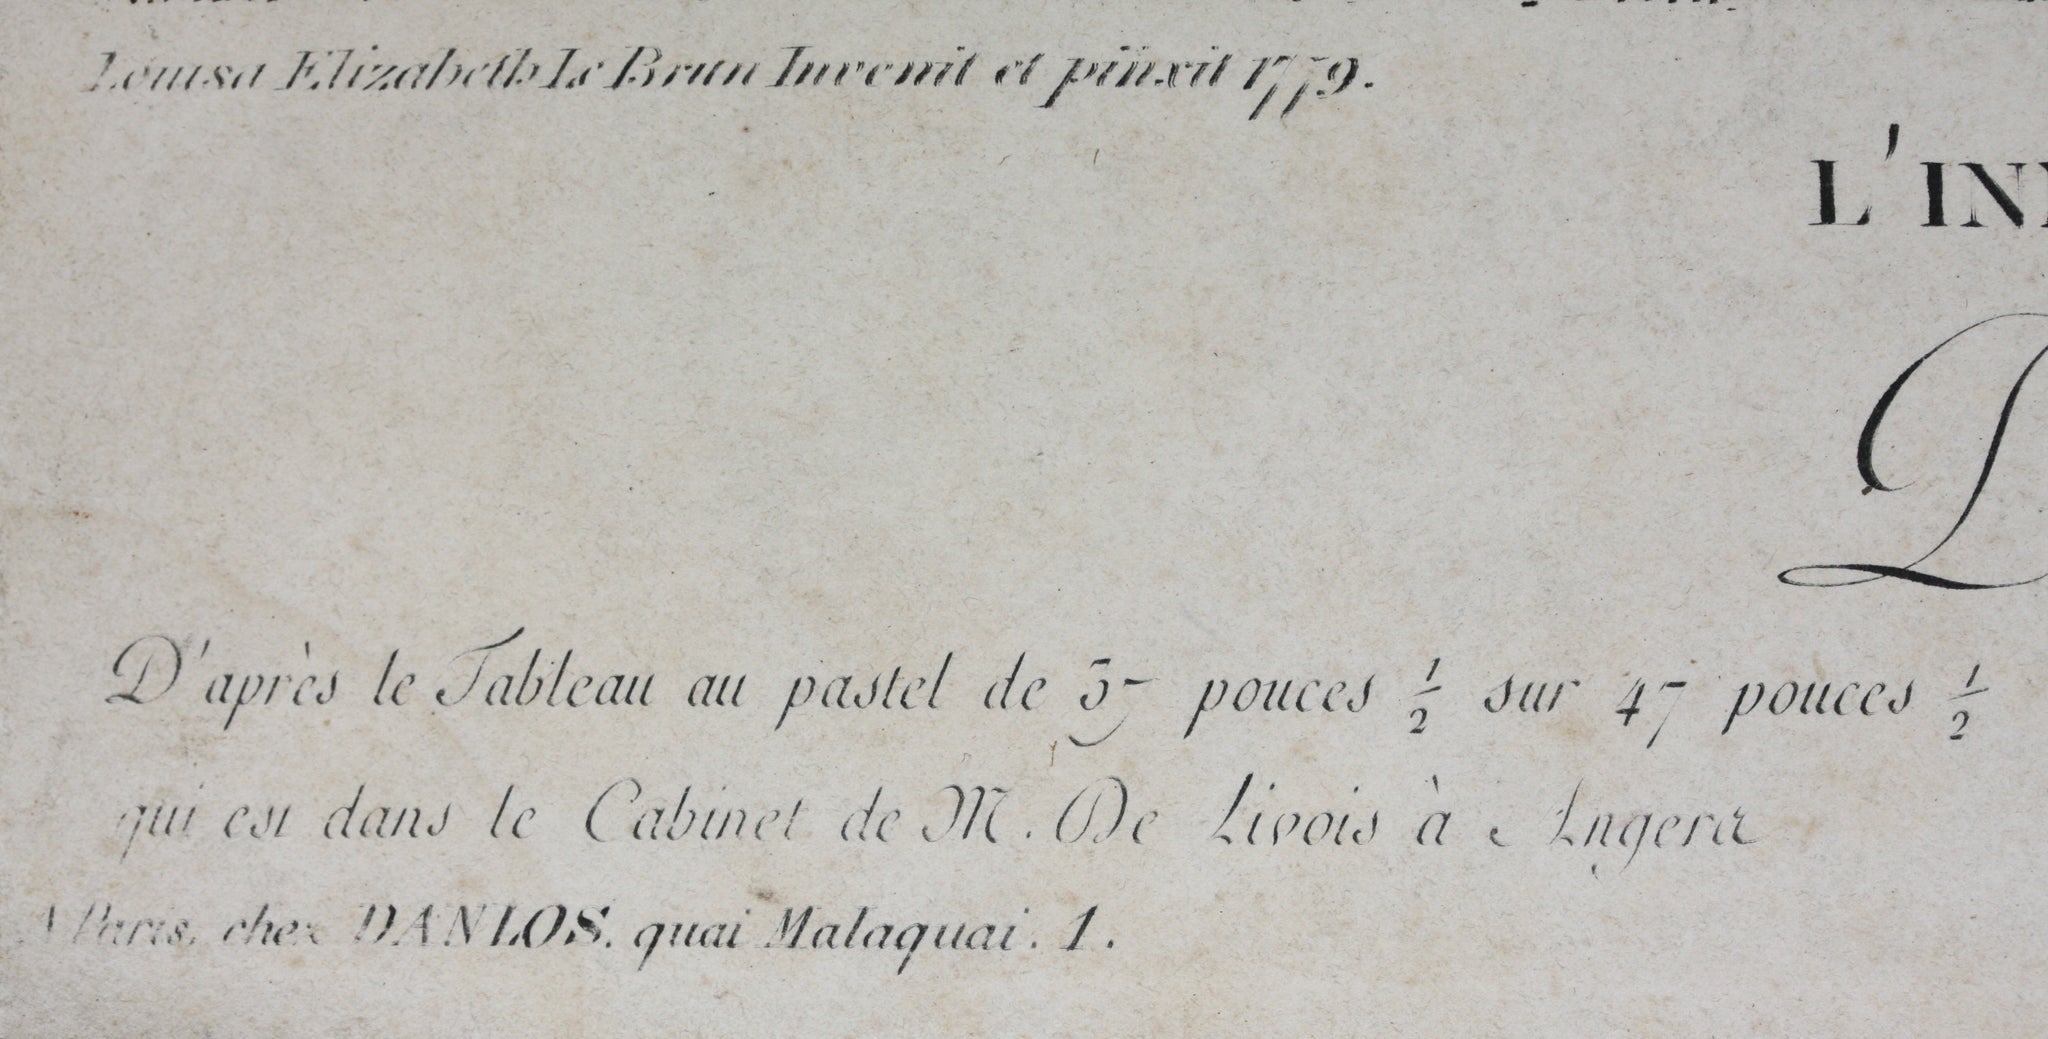 Louisa Elizabeth Le Brun Invenit et pinxit 1779.
L'IN
D
D'après le Tableau au pastel de 37 pouces ½ sur 47 pouces ½
qui est dans le Cabinet de M. De Livois à Angers
A Paris, chez DANLOS, quai Malaquai. 1.